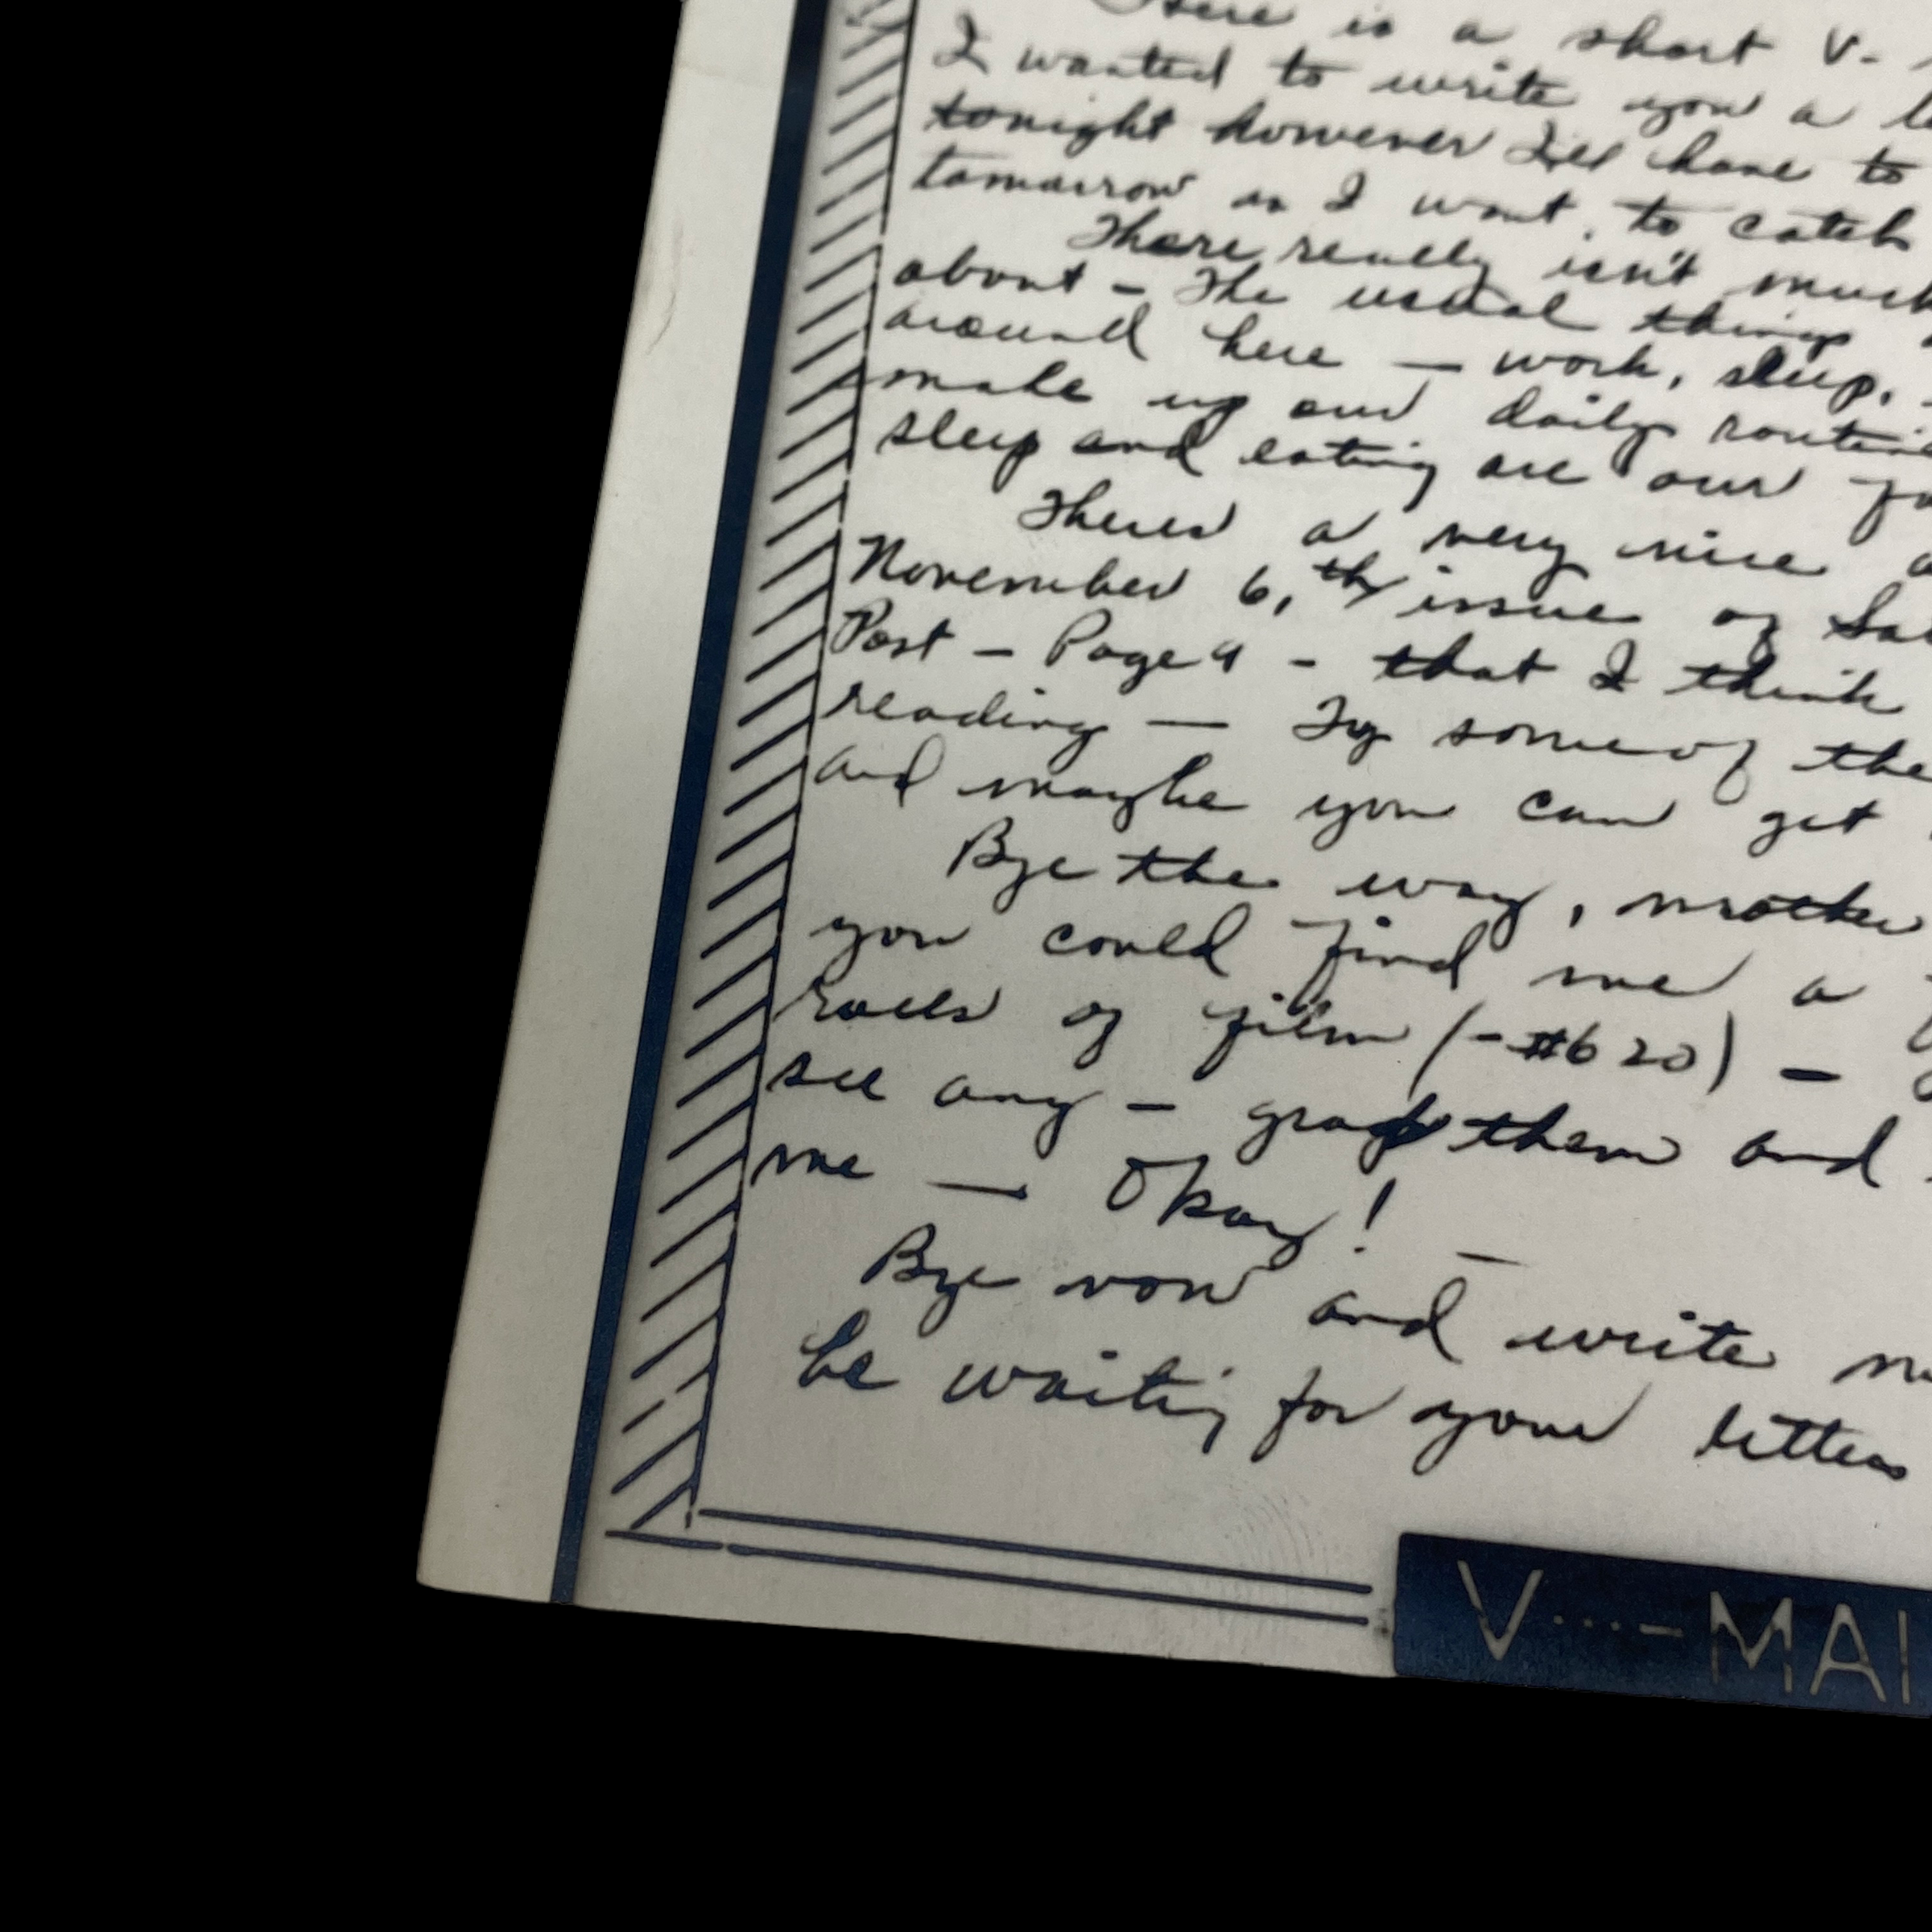 Here is a short V-
I wanted to write you a
tonight however I'll have to
tomorrow as I want to catch
There really isn't much
about - The usual things
around here — work, sleep,
make up our daily routine
sleep and eating are our
Theres a very nice
November 6,th issue of Sat
Post - Page 9 - that I think
reading — Try some of the
and maybe you can get
Bye the way, mother
you could find me a
rolls of film (-#620) -
see any - grab them and
me — Okay! -
Bye now and write
be waiting for your letters
V...-MAI